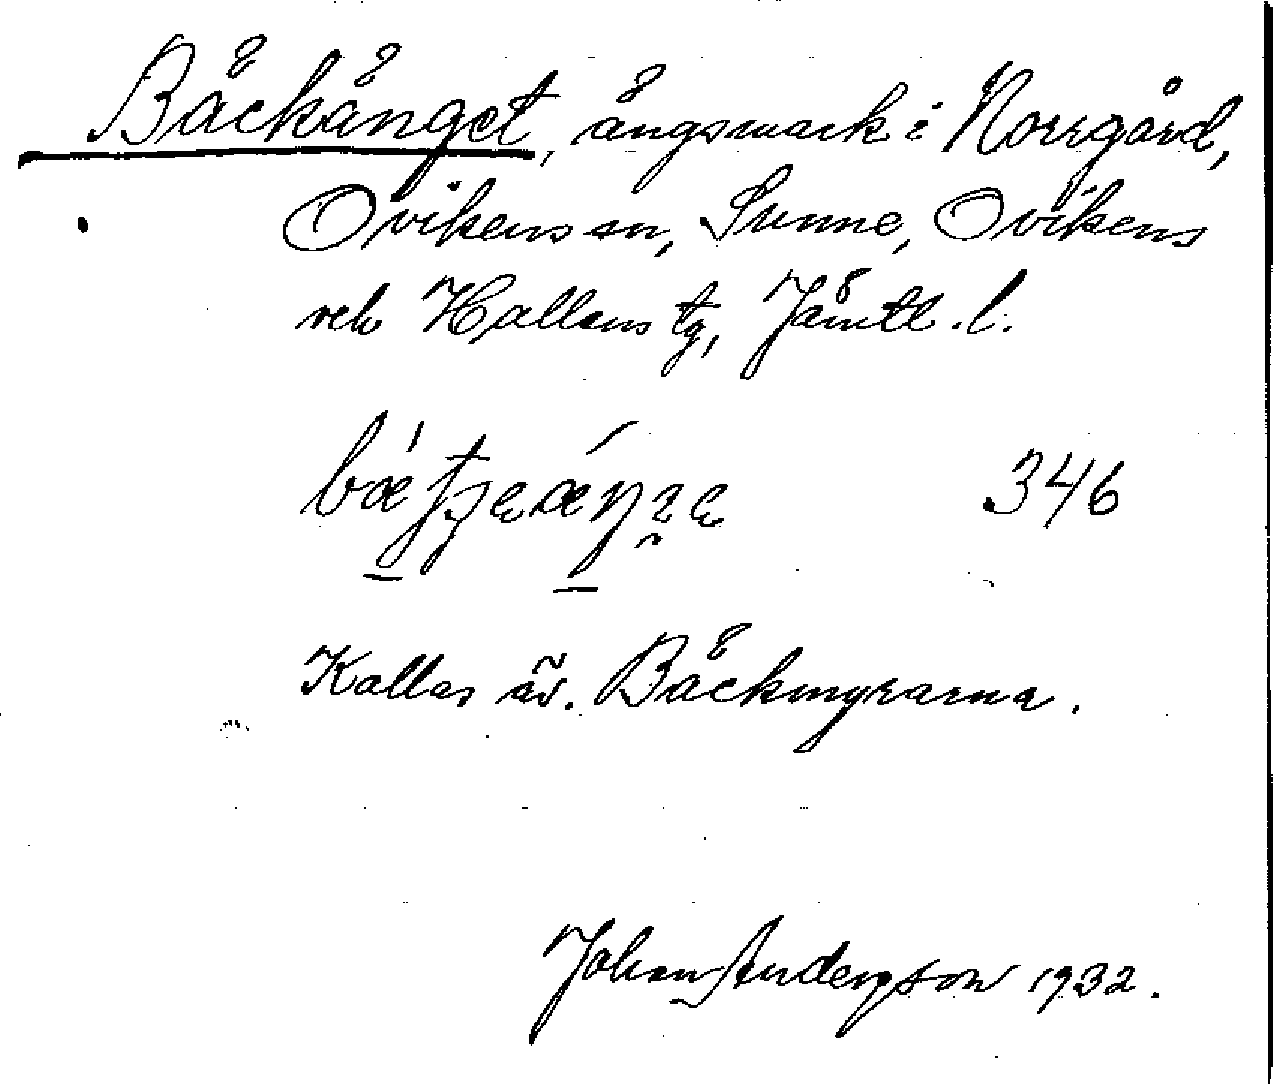 Bäckänget, ängsmark i Norrgård,
Ovikens sn, Sunne, Ovikens
och Hallens tg, Jämtl. l.
346
Kallas äv. Bäckmyrarna.
Johan Andersson 1932.